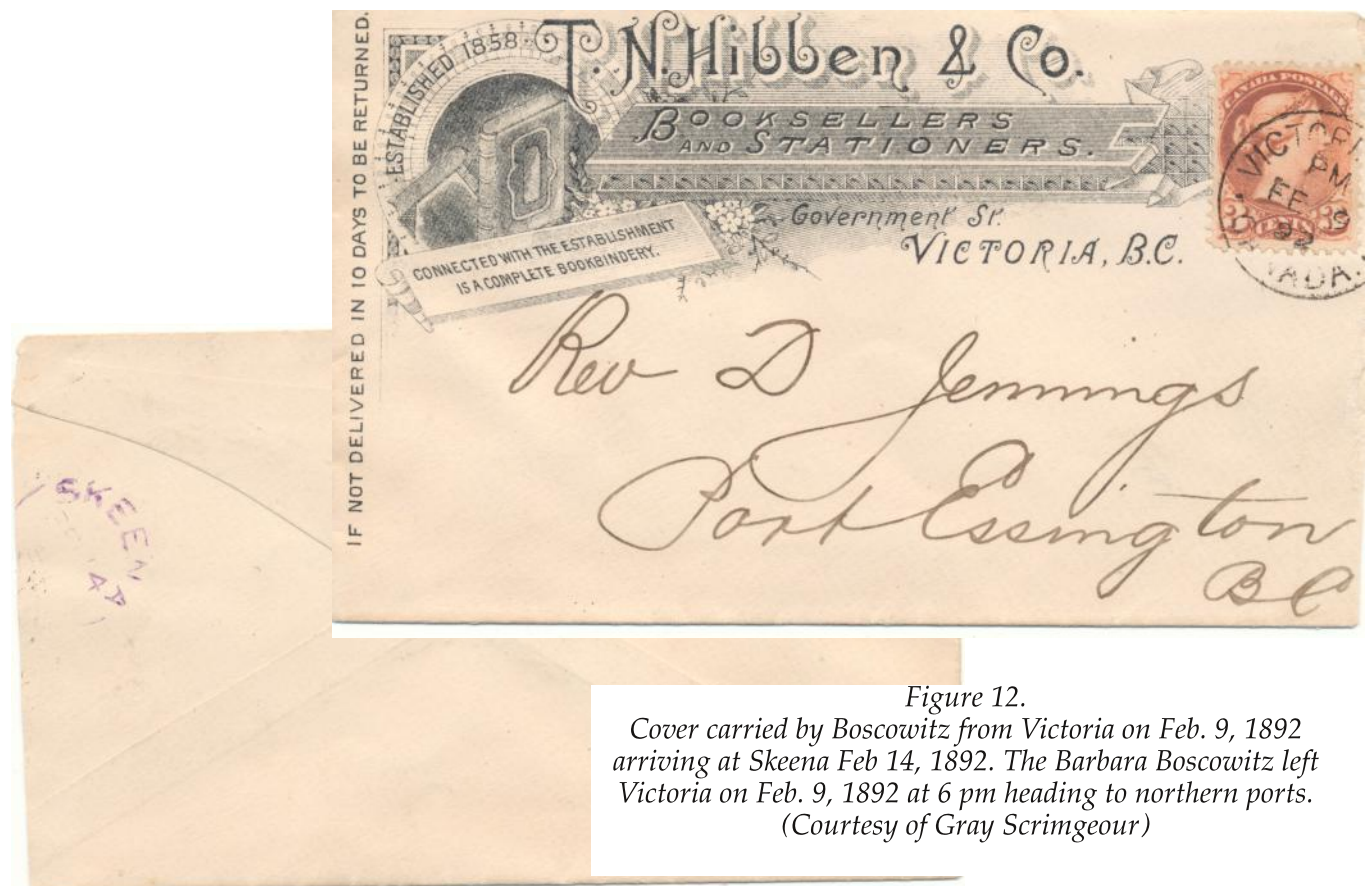 IF NOT DELIVERED IN 10 DAYS TO BE RETURNED.
ESTABLISHED 1858.
T. N. Hibben & Co.
BOOKSELLERS
AND STATIONERS.
CONNECTED WITH THE ESTABLISHMENT
IS A COMPLETE BOOKBINDERY.
Government St.
VICTORIA, B.C.
CANADA POSTAGE
VICTORI
PM
FE 9
92
NADA.
Rev D Jennings
Port Essington
BC
SKEENA
Figure 12.
Cover carried by Boscowitz from Victoria on Feb. 9, 1892
arriving at Skeena Feb 14, 1892. The Barbara Boscowitz left
Victoria on Feb. 9, 1892 at 6 pm heading to northern ports.
(Courtesy of Gray Scrimgeour)